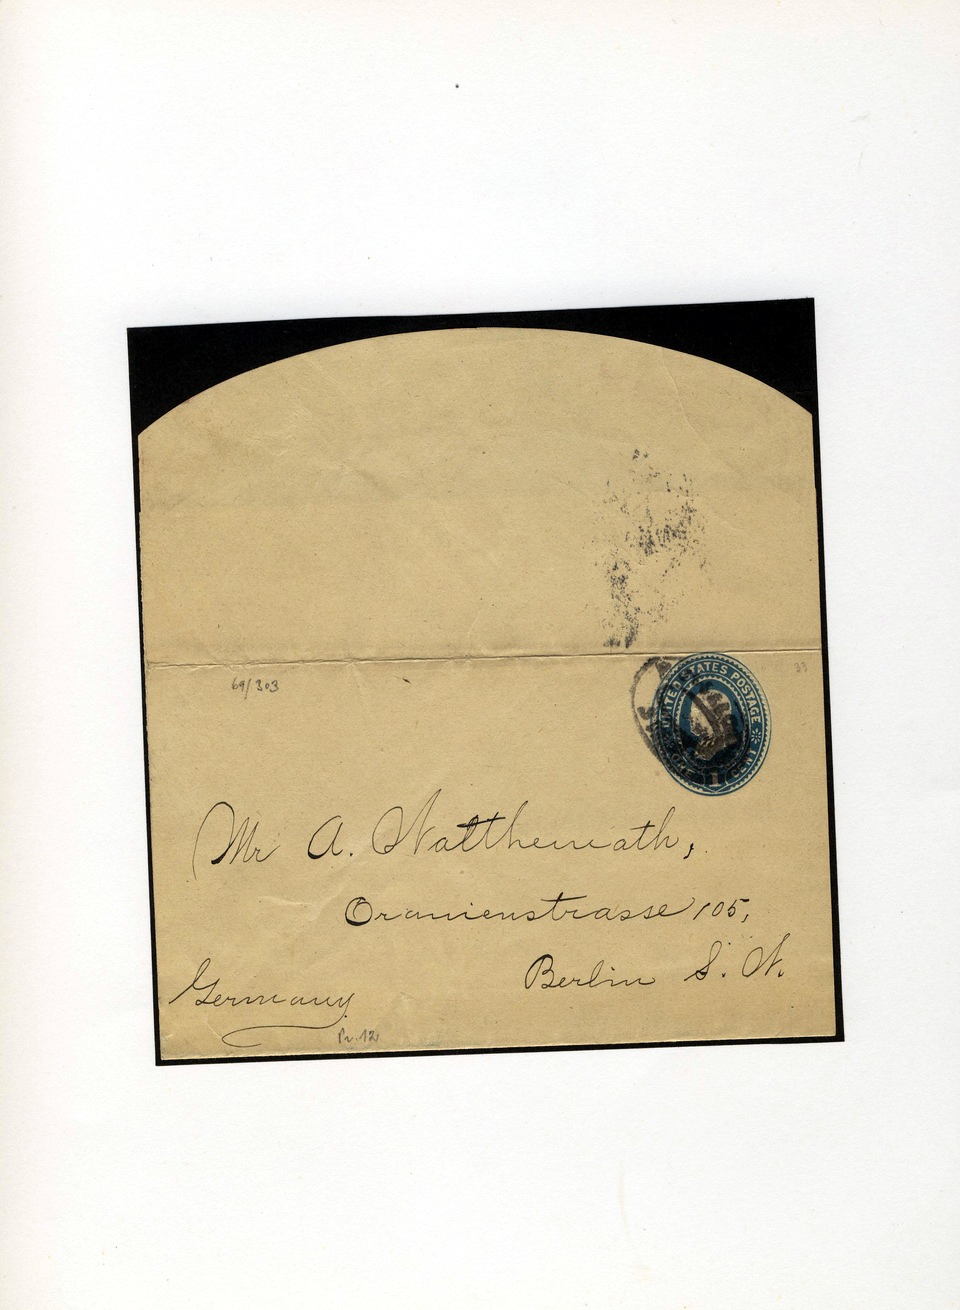 69/303
33
UNITED STATES POSTAGE
ONE 1 CENT
Mr A. Wattheneath,
Oranienstrasse 105,
Berlin S. W.
Germany
Pr. 12